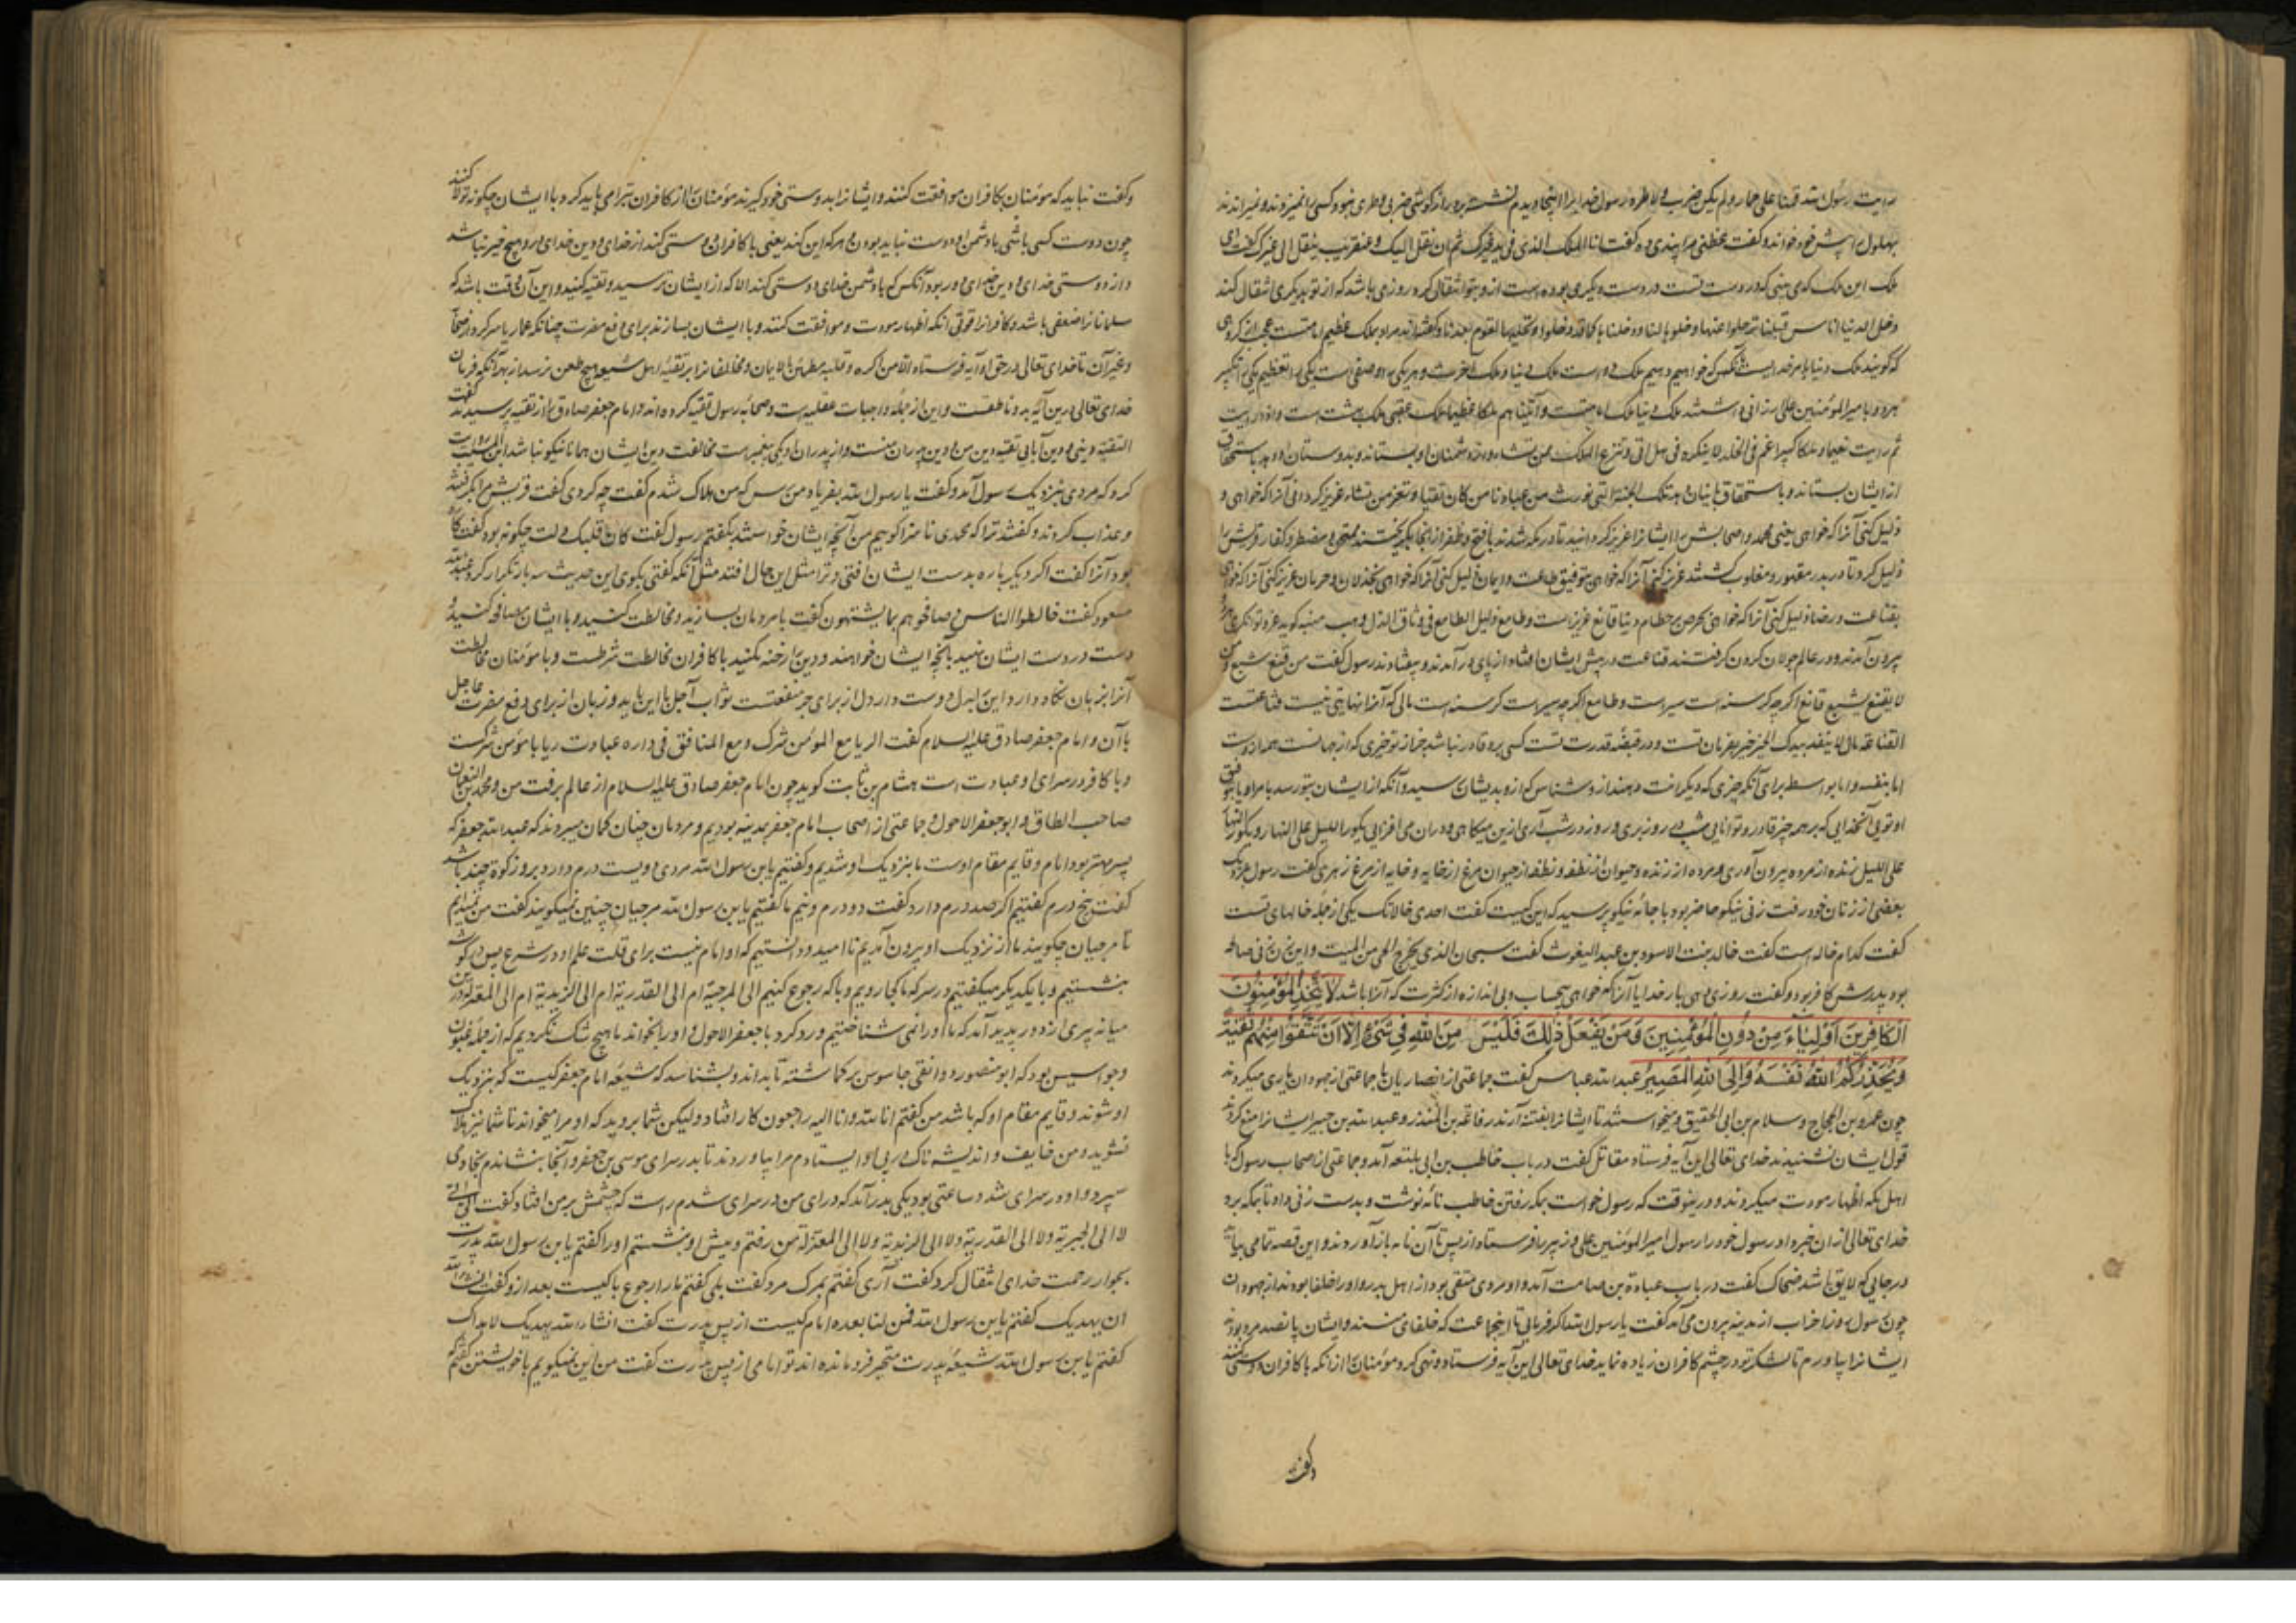 رایت رسول الله قبنا علی حمار ولم یکن ضرب ولا طرد رسول خدایرا اینجا دیدم نشسته بر
بهلول را پیش خود خواند و گفت عظنی مرا پندی ده گفت انا الملک الذی فی ید غیرک ثم ان نقل الیک و عنقریب ینقل الی غیرک گفت ای
ملک این ملک که می بینی که در دست تست در دست دیگری بوده است ازو بتو انتقال کرد روزی باشد که از تو بدیگری انتقال کند
که گویند ملک دنیا بامر خداست آنکس که خواهیم دهیم ملک دو است ملک دنیا و ملک آخرت و هر یکی را وصفی است یکی را تعظیم یکی را تکبیر
هر دو با میر المؤمنین علی ارزانی داشتند ملک دنیا ملک امامتست و آتینا هم ملکا عظیما ملک عقبی ملک بهشت است واذا رایت
ثم رایت نعیما و ملکا کبیرا و تنزع الملک ممن تشاء و از دشمنان او بستاند و بدوستان او دهد باستحقاق
از ایشان بستاند و باستحقاق باینان دهد تلک الجنة التی نورث من عبادنا من کان تقیا و تعز من تشاء عزیز گردانی آنرا که خواهی و
ذلیل کنی آنرا که خواهی یعنی محمد و اصحابش را ایشانرا عزیز گردانید تا در مکه شدند با فتح و ظفر
ذلیل کرد تا در بدر مقهور و مغلوب گشتند عزیز کنی آنرا که خواهی بتوفیق طاعت و ایمان ذلیل کنی آنرا که خواهی بخذلان و حرمان عزیز کنی آنرا که خواهی
بقناعت و رضا ذلیل کنی آنرا که خواهی بحرص بر حطام دنیا قانع عزیزست و طامع ذلیل الطامع فی وثاق الذل وهب منبه گوید عز و توانگری
بیرون آمدند و در عالم جولان کردن گرفتند قناعت در پیش ایشان افتاد از پای در آمدند و بیفتادند رسول گفت من قنع شبع و من
لا یقنع لم یشبع قانع اگر چه گرسنه است سیرست و طامع اگر چه سیرست گرسنه است مالی که آنرا نهایتی نیست قناعتست
القناعة مال لا ینفد بیدک الخیر خیر بفرمان تست و در قبضه قدرت تست کسی برو قادر نباشد جز از تو خیری که از جهانست همه از وست
اما بنفسه و اما بواسطه برای آنکه چیزی که دیگرانت دهند از و شناس که ازو بدیشان رسید و آنکه از ایشان بتو رسد بامر او یا بتوفیق
او تویی آنخدایی که بر همه چیز قادر و توانایی شب در روز بری و روز در شب آری ازین میکاهی و در آن می افزایی یکور اللیل علی النهار و یکور النهار
علی اللیل زنده از مرده بیرون آوری و مرده از زنده و حیوان از نطفه و نطفه از حیوان مرغ از خایه و خایه از مرغ زهری گفت رسول بنزدیک
بعضی از زنان خود رفت زنی نیکو حاضر بود با جامه نیکو پرسید که این کیست گفت احدی خالاتک یکی از جمله خالهای تست
گفت کدام خاله است گفت خالده بنت الاسود بن عبد الیغوث گفت سبحان الذی یخرج الحی من المیت و این زن زنی صالحه
بود پدرش کافر بود و گفت روزی دهی بار خدایا آنرا که خواهی بی حساب و بی اندازه از کثرت که آنرا باشد لَا یَتَّخِذِ الْمُؤْمِنُونَ
الْكَافِرِينَ أَوْلِيَاءَ مِنْ دُونِ الْمُؤْمِنِينَ وَمَنْ يَفْعَلْ ذَلِكَ فَلَيْسَ مِنَ اللَّهِ فِي شَيْءٍ إِلَّا أَنْ تَتَّقُوا مِنْهُمْ تُقَيَةً
وَيُحَذِّرُكُمُ اللَّهُ نَفْسَهُ وَإِلَى اللَّهِ الْمَصِيرُ عبد الله عباس گفت جماعتی از انصاریان با جماعتی از جهودان یاری میکردند
چون عمرو بن الحجاج و سلام بن ابی الحقیق و میخواستند تا ایشانرا بفتنه آرند رفاعة بن المنذر و عبد الله بن جبیر ایشانرا منع کردند
قول ایشان نشنیدند خدای تعالی این آیه فرستاد مقاتل گفت در باب حاطب بن ابی بلتعه آمد و جماعتی از اصحاب رسول که با
اهل مکه اظهار مودت میکردند و در ینوقت که رسول خواست بمکه رفتن حاطب نامه نوشت و بدست زنی داد تا بمکه برد
خدای تعالی از آن خبر داد رسول خود را رسول امیر المؤمنین علی و زبیر را فرستاد از پس تا آن نامه باز آوردند و این قصه تمامی بیاید
در جایی که لایق باشد ضحاک گفت در باب عبادة بن صامت آمد و او مردی متقی بود از اهل بدر و او را حلفا بودند از جهودان
چون رسول روز احزاب از مدینه بیرون می آمد گفت یا رسول الله اگر فرمایی تا اینجماعت که حلفای منند و ایشان پانصد مرد بودند
ایشانرا بیاورم تا لشکر تو در چشم کافران زیاده نماید خدای تعالی این آیه فرستاد و نهی کرد مؤمنان را از آنکه با کافران دوستی کنند
وگفت
وگفت نباید که مؤمنان بکافران موافقت کنند و ایشانرا بدوستی خود گیرند مؤمنان را از کافران تبرا می باید کرد با ایشان چگونه تولا کنند
چون دوست کسی باشی با دشمن او دوست نباید بودن و هر که این کند یعنی با کافران دوستی کند از خدای و دین خدای او را هیچ خیر نباشد
و از دوستی خدای و دین خدای دور بود آنکس که با دشمن خدای دوستی کند الا که از ایشان ترسید و تقیه کنید و این آن وقت باشد که
مسلمانانرا ضعفی باشد و کافرانرا قوتی آنکه اظهار مودت و موافقت کنند و با ایشان بسازند برای دفع مضرت چنانکه عمار یاسر کرد از صحابه
و غیر آن تا خدای تعالی در حق او آیه فرستاد الا من اکره و قلبه مطمئن بالایمان و مخالفانرا بر تقیه اهل شیعه هیچ طعن نرسد از بهر آنکه قرآن
خدای تعالی درین آیه بدو ناطقست و این از جمله واجبات عقلیه است و صحابه رسول تقیه کرده اند و امام جعفر صادق را از تقیه پرسیدند گفت
التقیة دینی و دین آبائی تقیه دین من و دین پدران منست
کرد که مردی بنزدیک رسول آمد و گفت یا رسول الله بفریاد من رس که من هلاک شدم گفت چه کردی گفت قریش مرا بگرفتند
و عذاب کردند و گفتند ترا که محمدی ناسزا گوییم من آنچه ایشان خواستند بگفتم رسول گفت کان قلبک دلت چگونه بود گفت
بود آنرا گفت اگر دیگر باره بدست ایشان افتی و ترا مثل این حال افتد مثل آنکه گفتی بگوی این حدیث سه بار تکرار کرد عبد الله
مسعود گفت خالطوا الناس و صافحوهم بما یشتهون گفت با مردمان بسازید و مخالطت کنید و با ایشان مصافحه کنید و
دست در دست ایشان نهید بآنچه ایشان خواهند و دین را رخنه مکنید با کافران مخالطت شرطست و با مؤمنان مخالطت
آنرا بزبان نگاه دار و این را بدل دوست دار دل از برای جر منفعت ثواب آجل با این باید و زبان از برای دفع مضرت عاجل
با آن و امام جعفر صادق علیه السلام گفت الریا مع المؤمن شرک و مع المنافق فی داره عبادت ریا با مؤمن شرکست
و با کافر در سرای او عبادت است هشام بن ثابت گوید چون امام جعفر صادق علیه السلام از عالم برفت من و محمد بن النعمان
صاحب الطاق و ابو جعفر الاحول و جماعتی از اصحاب امام جعفر بمدینه بودیم و مردمان چنان گمان میبردند که عبد الله جعفر که
پسر مهتر بود امام و قایم مقام اوست ما بنزدیک او شدیم و گفتیم یابن رسول الله مردی دویست درم دارد برو زکوة چند باشد
گفت پنج درم گفتیم اگر صد درم دارد گفت دو درم و نیم ما گفتیم یابن رسول الله مرجیان چنین نمیگویند گفت من نمیدانم
تا مرجیان چگویند ما از نزدیک او بیرون آمدیم نا امید و دانستیم که او امام نیست برای قلت علم او در شرع پس در گوشه
بنشستیم و با یکدیگر میگفتیم در سر که ما کجا رویم و با که رجوع کنیم الی المرجیة ام الی القدریة ام الی الزیدیة ام الی المعتزله درین
میانه پیری از دور پدید آمد که ما او را نمی شناختیم و رو کرد با جعفر الاحول و او را بخواند ما هیچ شک نکردیم که از جمله
و جواسیس بود که ابو منصور دوانقی جاسوس بر گماشته تا بداند و بشناسد که شیعه امام جعفر کیست که بنزدیک
او شوند و قایم مقام او که باشد من گفتم انا لله وانا الیه راجعون کار افتاد ولیکن شما بروید که او مرا میخواند تا شما نیز هلاک
نشوید و من خایف و اندیشه ناک در پی او ایستادم مرا بیاوردند تا بدر سرای موسی بن جعفر و آنجا بنشاندم بخادمی
سپرد و او در سرای شد و ساعتی بود یکی بدر آمد که در آی من در سرای شدم راست که چشمش بر من افتاد گفت الی الی
لا الی الجبریة ولا الی القدریة ولا الی الزیدیة ولا الی المعتزلة من رفتم و پیش او بنشستم او را گفتم یابن رسول الله پدرت
بجوار رحمت خدای انتقال کرد گفت آری گفتم بمرگ مرد گفت بلی گفتم ما را رجوع با کیست بعد ازو گفت انشاء الله
ان یهدیک گفتم یابن رسول الله فمن لنا بعده امام کیست از پس پدرت گفت انشاء الله یهدیک لابداک
گفتم یابن رسول الله شیعه پدرت متحیر فرو مانده اند تو امامی از پس پدرت گفت من این نمیگویم با خویشتن گفتم